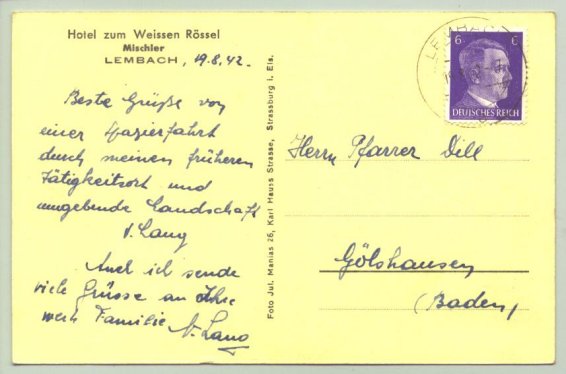 Hotel zum Weissen Rössel
Mischler
LEMBACH, 19.8.42.
Beste Grüße von
einer Spazierfahrt
durch meinen früheren
Tätigkeitsort und
umgebende Landschaft
Lang
Auch ich sende
viele Grüsse an Ihre
werte Familie Lang
Foto Jul. Manias 26, Karl Hauss Strasse, Strassburg i. Els.
LEMBACH
6 6
DEUTSCHES REICH
Herrn Pfarrer Dill
Gölshausen
(Baden)